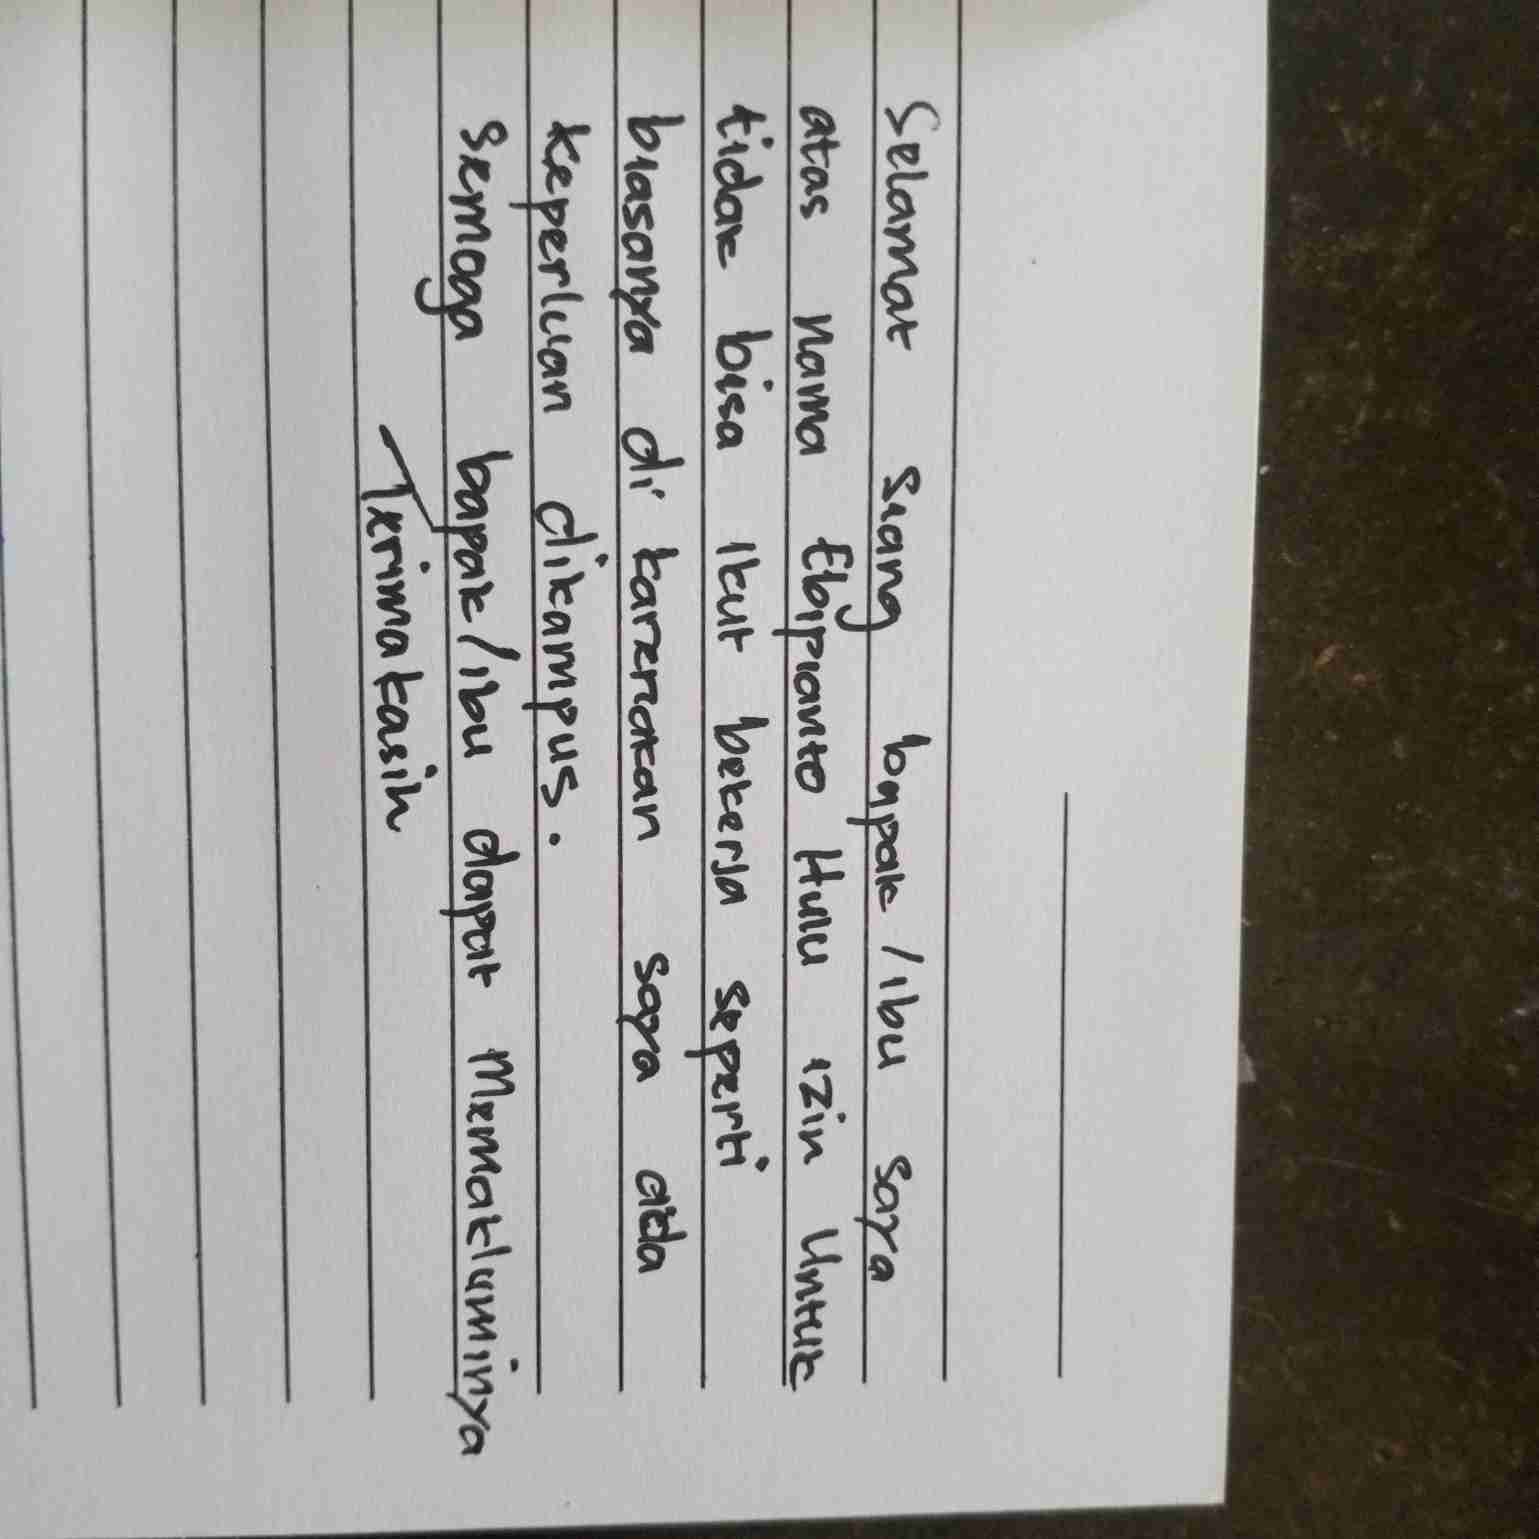 Selamat siang bapak/ibu saya
atas nama Ebipianto Hulu izin Untuk
tidak bisa ikut bekerja seperti
biasanya di karenakan saya ada
keperluan dikampus.
Semoga bapak/ibu dapat Memakluminya
Terimakasih